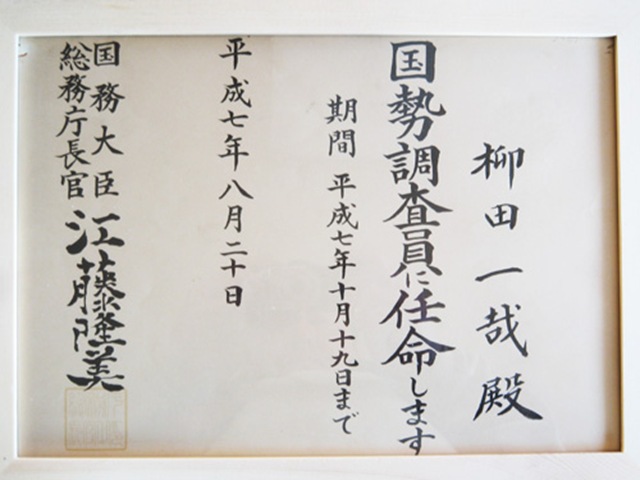 柳田一哉殿
国勢調査員に任命します
期間 平成七年十月十九日まで
平成七年八月二十日
国務大臣
総務庁長官 江藤隆美